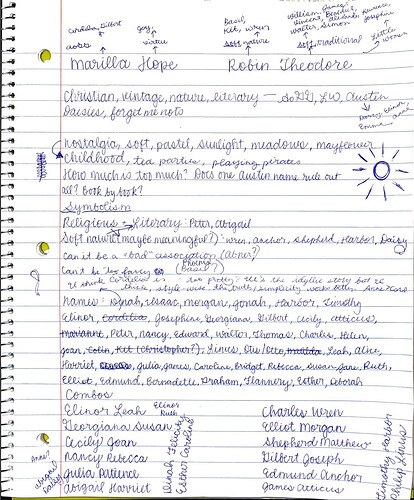 Cordelia, Gilbert
joy,
Basil,
Kit, wren
William, James?
Vincent, Benedict,
Walter, Simon
AOGG
virtue
soft nature
soft, traditional
Little
Women
Marilla Hope
Robin Theodore
Christian, vintage, nature, literary — AOGG, LW, Austin
Daisies, forget me nots
nostalgia, soft, pastel, sunlight, meadows, mayflower
childhood, tea parties, playing pirates
How much is too much? Does one Austin name rule out
all? Book by book?
Symbolism
Religious = Literary: Peter, Abigail
Soft nature (maybe meaningful?): wren, Anchor, Shepherd, Harbor, Daisy
Can it be a "bad" association (Abner?)
Can't be too fancy (Basil?)
Names: Isaac, Morgan, Jonah, Harbor, Timothy
Elinor, Cordelia, Josephine, Georgiana, Gilbert, Cecily, Atticus,
Marianne, Peter, Nancy, Edward, Walter, Thomas, Charles, Helen,
Joan, Colin, Kit (Christopher?), Linus, Otis/Otto, Matilda, Leah, Alice,
Harriet, Julia, James, Caroline, Bridget, Rebecca, Susan, Jane, Ruth,
Elliot, Edmund, Bernadette, Graham, Flannery, Esther, Deborah
Combos
Elinor Leah
Elinor
Ruth
Charles Wren
Georgiana Susan
Elliot Morgan
Cecily Joan
Shepherd Matthew
Nancy Rebecca
Gilbert Joseph
Julia Patience
Edmund Anchor
Abigail Harriet
James Atticus
Dinah Felicity
Esther Caroline
Timothy Harbor
Philip Linus